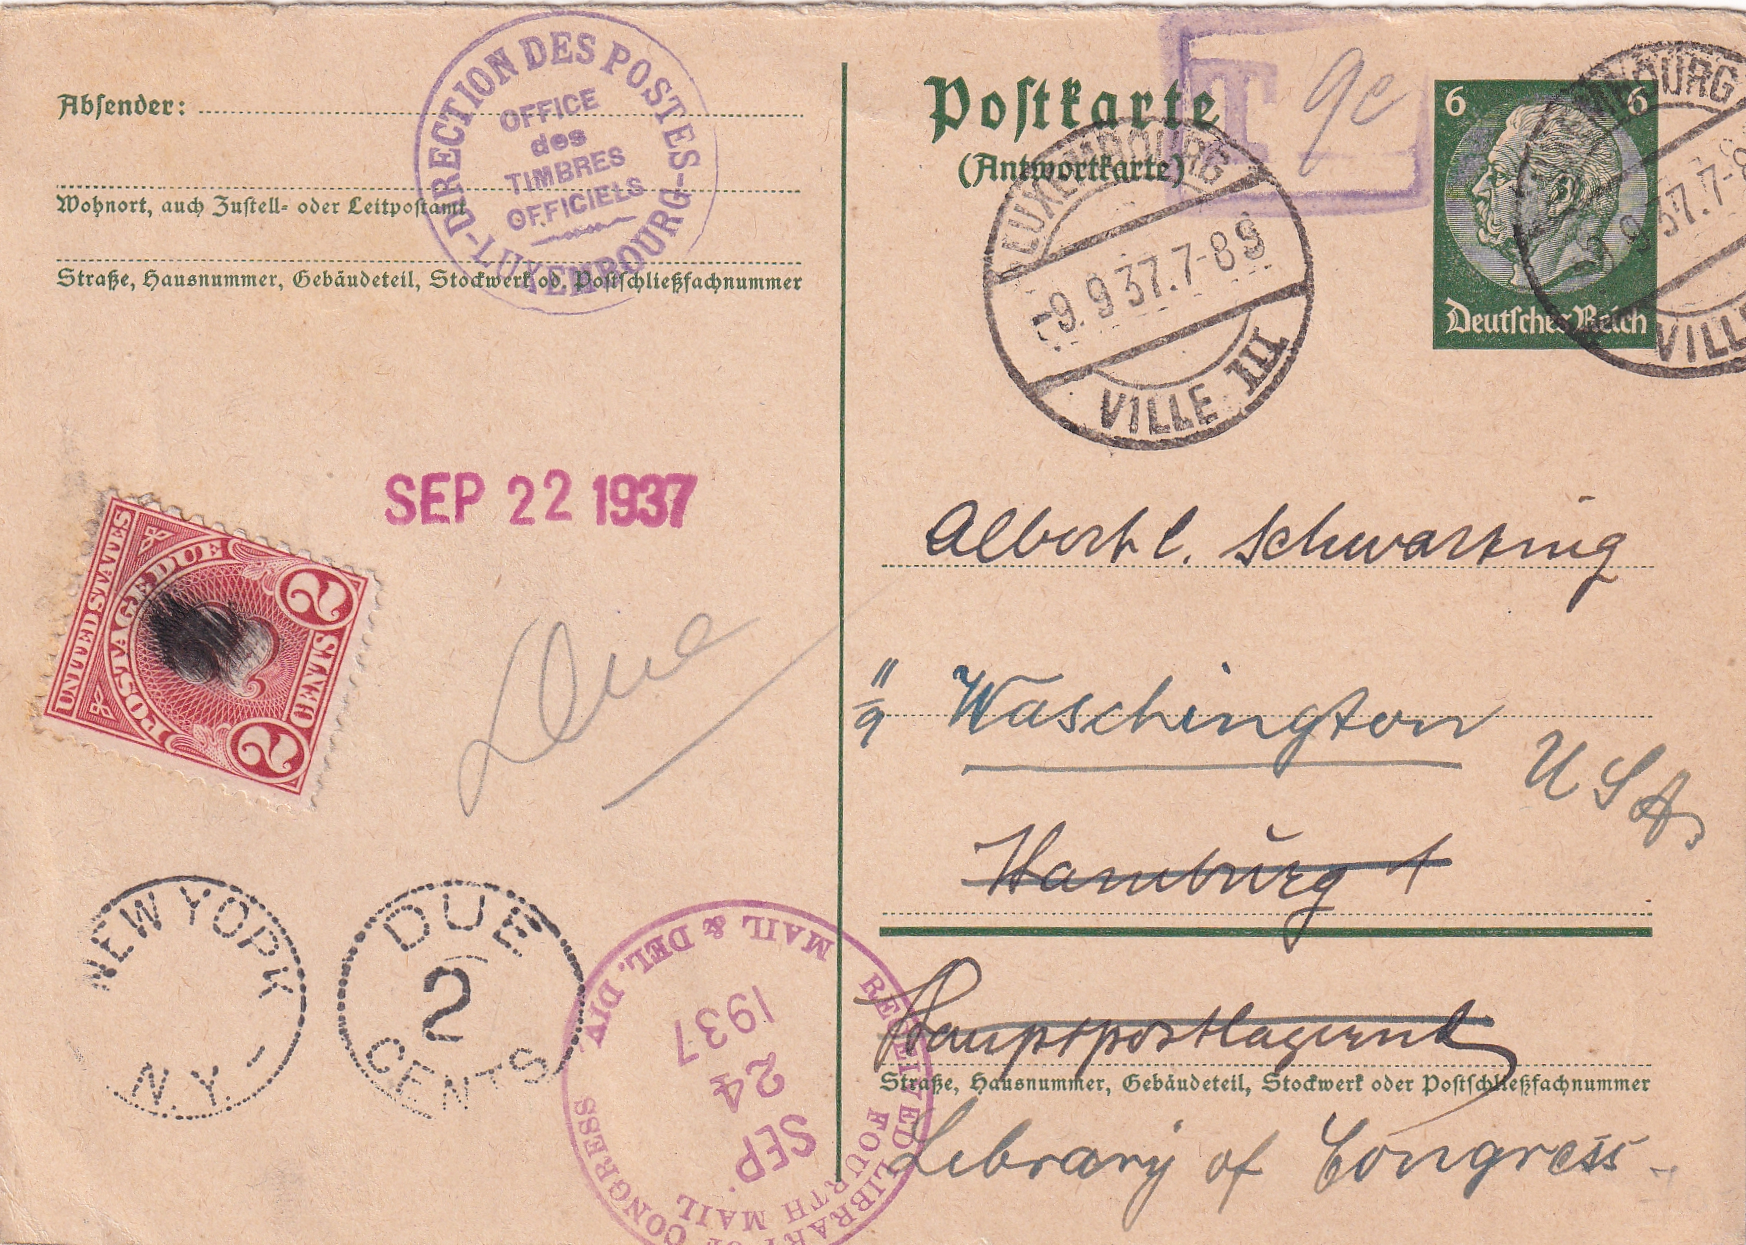 DIRECTION DES POSTES
-LUXEMBOURG-
OFFICE
des
TIMBRES
OFFICIELS
Absender:
Wohnort, auch Zustell- oder Leitpostamt
Straße, Hausnummer, Gebäudeteil, Stockwerk od. Postschließfachnummer
Postkarte
(Antwortkarte)
T
LUXEMBOURG
-9. 9 37. 7-8
VILLE III
6 6
Deutsches Reich
9 37. 7-8
VILLE
SEP 22 1937
UNITED STATES
POSTAGE DUE
2 CENTS 2
Due
NEW YORK
N.Y.
DUE
2
CENTS
RECEIVED
MAIL & DEL. DIV.
LIBRARY OF CONGRESS
FOURTH MAIL
SEP.
24
1937
Albert C. Schwarting
Waschington
USA.
Hamburg 1
Hauptpostlagernd
Straße, Hausnummer, Gebäudeteil, Stockwerk oder Postschließfachnummer
Library of Congress